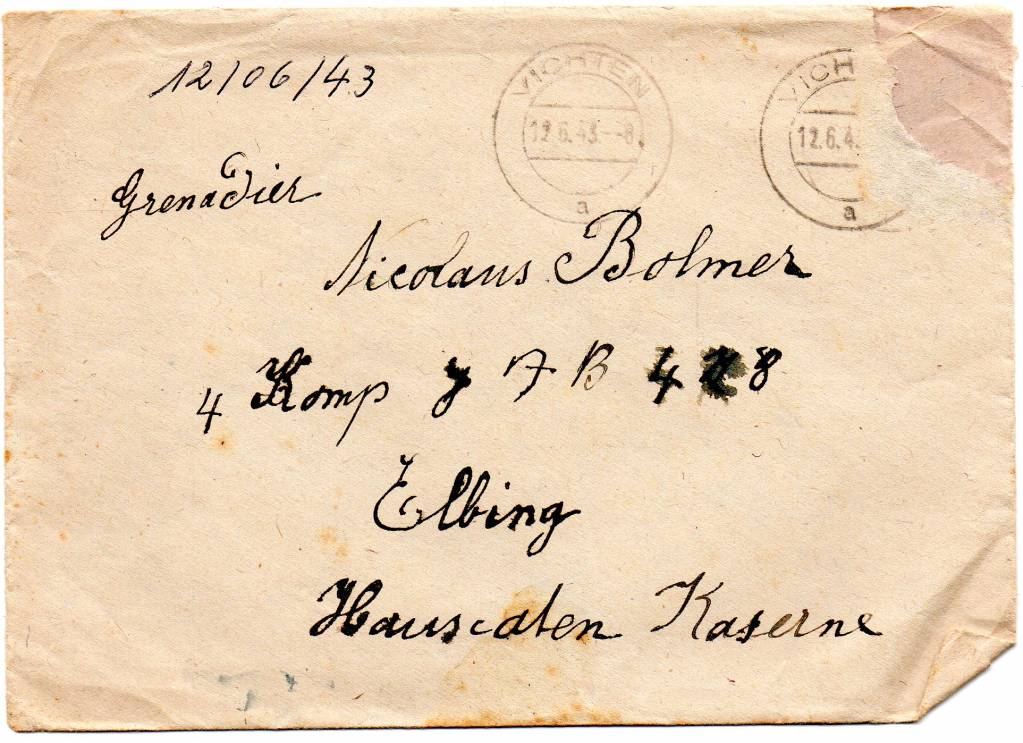 12/06/43
VICHTEN
12.6.43.--8.
a
VICH
12.6.4
a
Grenadier
Nicolaus Bolmer
4 Komp J A B 4 8
Elbing
Hauscaten Kaserne